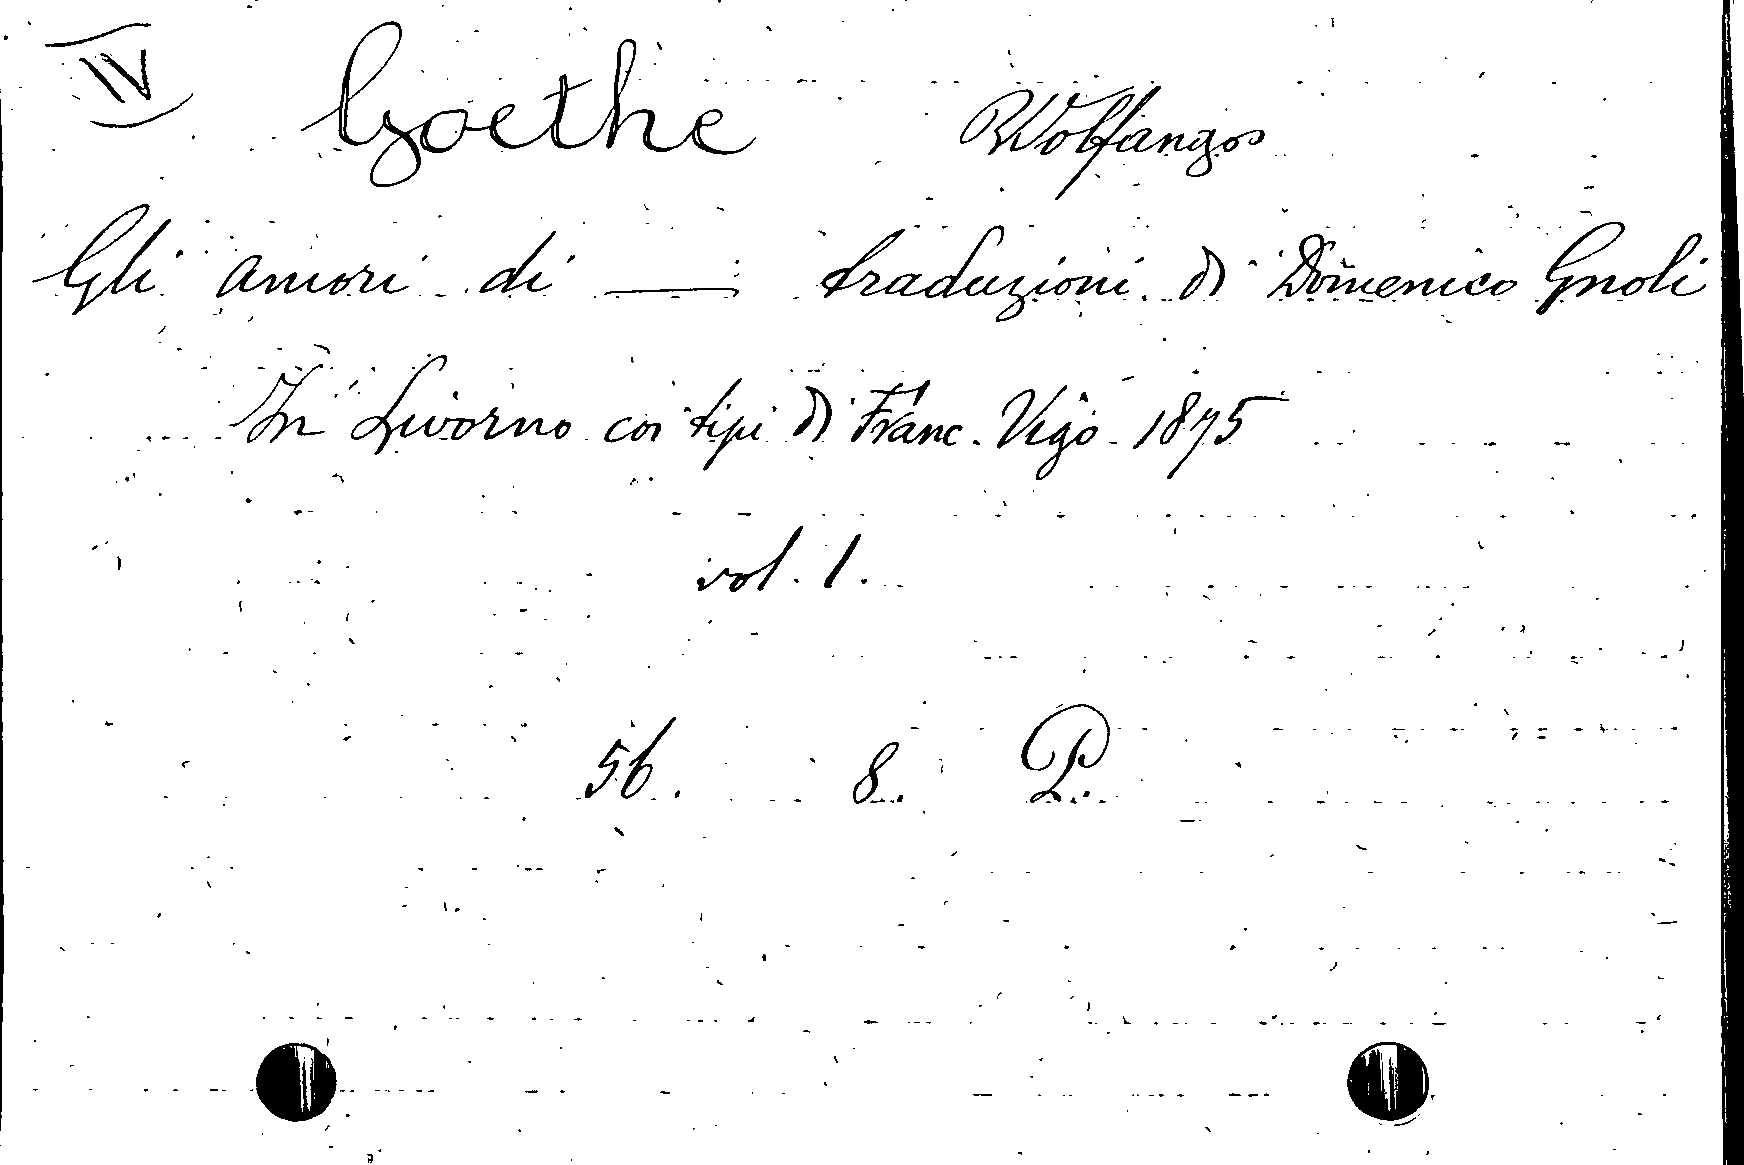 IV Goethe Wolfango
Gli amori di —— traduzioni di Domenico Gnoli
In Livorno coi tipi di Franc. Vigo 1875
vol. 1.
56. 8. P.